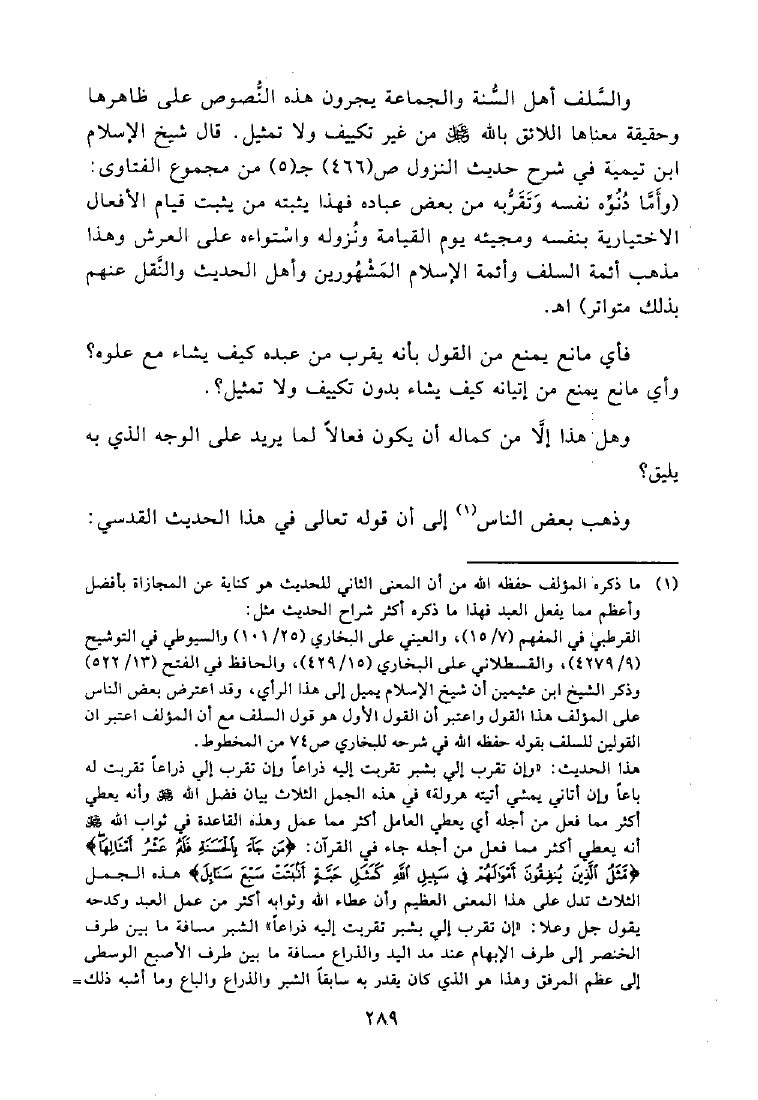 والسَّلف أهل السُّنة والجماعة يجرون هذه النُّصوص على ظاهرها
وحقيقة معناها اللائق بالله ﷻ من غير تكييف ولا تمثيل. قال شيخ الإسلام
ابن تيمية في شرح حديث النزول ص(٤٦٦) جـ(٥) من مجموع الفتاوى:
(وأَمَّا دُنُوِّه نفسه وَتَقَرُّبه من بعض عباده فهذا يثبته من يثبت قيام الأفعال
الاختيارية بنفسه ومجيئه يوم القيامة ونُزوله واسْتواءه على العرش وهذا
مذهب أئمة السلف وأئمة الإسلام المَشْهُورين وأهل الحديث والنَّقل عنهم
بذلك متواتر) اهـ.
فأي مانع يمنع من القول بأنه يقرب من عبده كيف يشاء مع علوه؟
وأي مانع يمنع من إتيانه كيف يشاء بدون تكييف ولا تمثيل؟.
وهل هذا إلَّا من كماله أن يكون فعالاً لما يريد على الوجه الذي به
يليق؟
وذهب بعض الناس(١) إلى أن قوله تعالى في هذا الحديث القدسي:
(١) ما ذكره المؤلف حفظه الله من أن المعنى الثاني للحديث هو كناية عن المجازاة بأفضل
وأعظم مما يفعل العبد فهذا ما ذكره أكثر شراح الحديث مثل:
القرطبي في المفهم (١٥/٧)، والعيني على البخاري (١٠١/٢٥) والسيوطي في التوشيح
(٤٢٧٩/٩)، والقسطلاني على البخاري (٤٢٩/١٥)، والحافظ في الفتح (٥٢٢/١٣)
وذكر الشيخ ابن عثيمين أن شيخ الإسلام يميل إلى هذا الرأي، وقد اعترض بعض الناس
على المؤلف هذا القول واعتبر أن القول الأول هو قول السلف مع أن المؤلف اعتبر ان
القولين للسلف بقوله حفظه الله في شرحه للبخاري ص٧٤ من المخطوط.
هذا الحديث: «وإن تقرب إلي بشبر تقربت إليه ذراعاً وإن تقرب إلي ذراعاً تقربت له
باعاً وإن أتاني يمشي أتيته هرولة» في هذه الجمل الثلاث بيان فضل الله ﷻ وأنه يعطي
أكثر مما فعل من أجله أي يعطي العامل أكثر مما عمل وهذه القاعدة في ثواب الله ﷻ
أنه يعطي أكثر مما فعل من أجله جاء في القرآن: ﴿مَن جَآءَ بِالْحَسَنَةِ فَلَهُ عَشْرُ أَمْثَالِهَا﴾
﴿مَّثَلُ الَّذِينَ يُنفِقُونَ أَمْوَالَهُمْ فِي سَبِيلِ اللَّهِ كَمَثَلِ حَبَّةٍ أَنْبَتَتْ سَبْعَ سَنَابِلَ﴾ هذه الجمل
الثلاث تدل على هذا المعنى العظيم وأن عطاء الله وثوابه أكثر من عمل العبد وكدحه
يقول جل وعلا: «إن تقرب إلي بشبر تقربت إليه ذراعاً» الشبر مسافة ما بين طرف
الخنصر إلى طرف الإبهام عند مد اليد والذراع مسافة ما بين طرف الأصبع الوسطى
إلى عظم المرفق وهذا هو الذي كان يقدر به سابقاً الشبر والذراع والباع وما أشبه ذلك=
٢٨٩